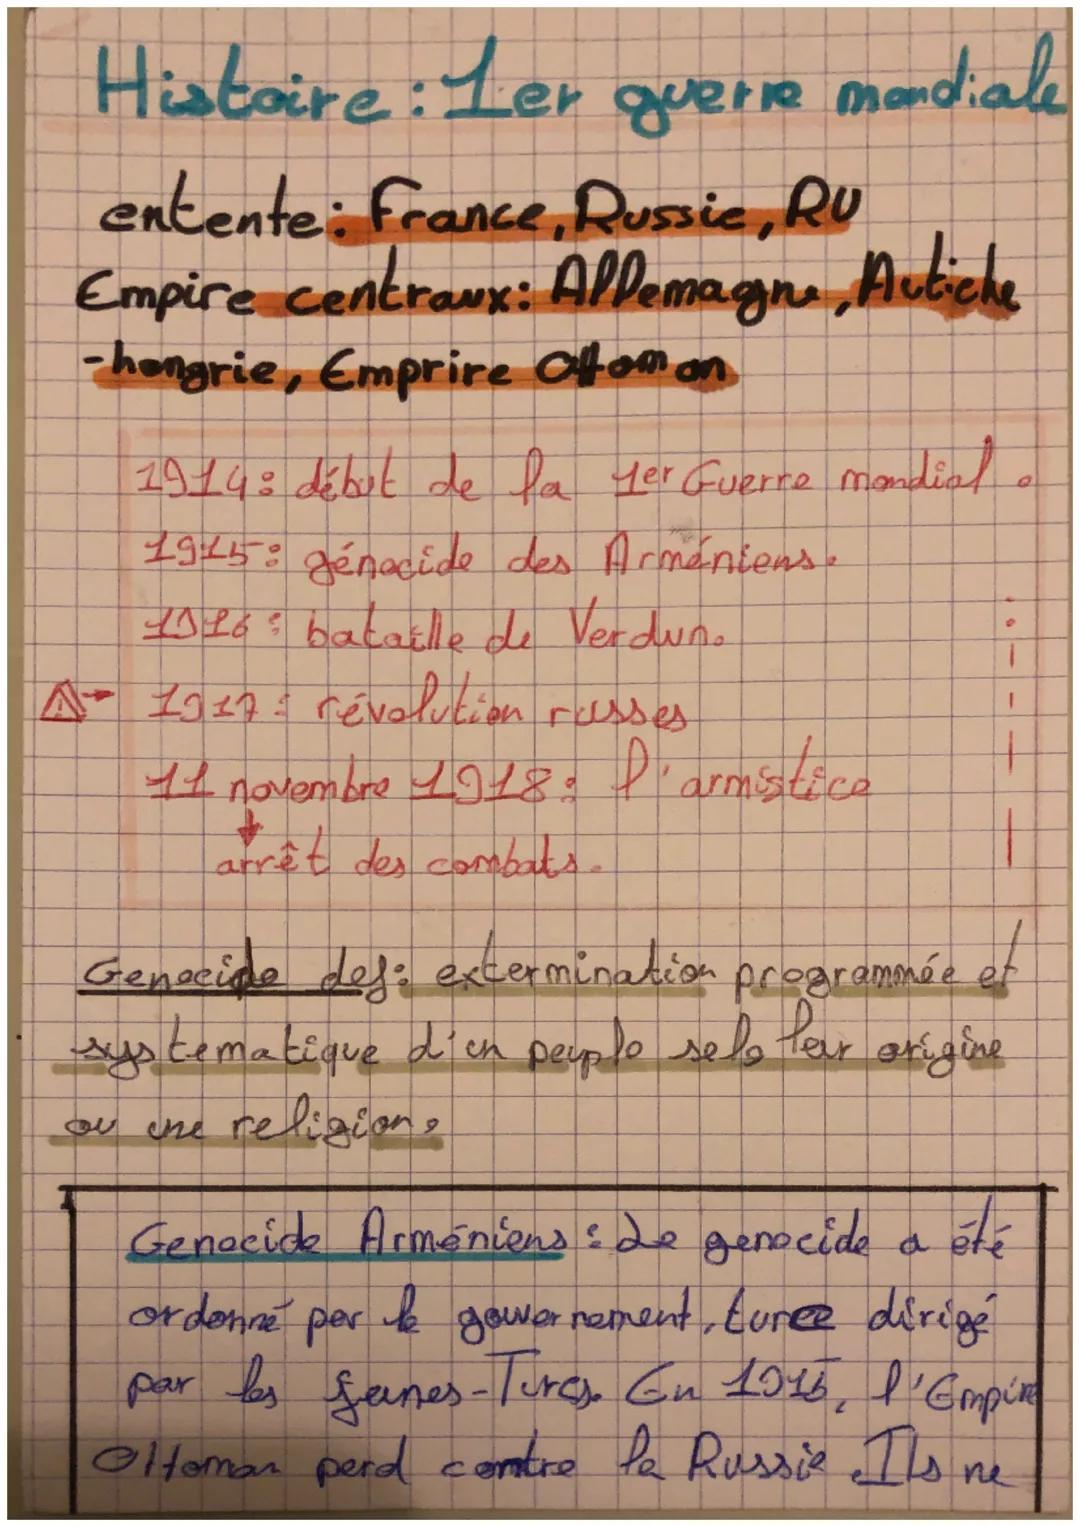 Histoire : 1er guerre mondiale
entente : France, Russie, RU
Empire centraux : Allemagne, Autiche
-hongrie, Emprire Ottoman
1914 : début de la 1er Guerre mondial.
1915 : génocide des Arméniens.
1916 : bataille de Verdun.
⚠→ 1917 : révolution russes
11 novembre 1918 : l'armistice
↓
arrêt des combats.
Genocide def : extermination programmée et
systematique d'un peuple selo leur origine
ou une religion.
Genocide Arméniens : Le genocide a été
ordonné par le gouvernement, turce dirigé
par les jeunes-Turcs. En 1915, l'Empire
Ottoman perd contre la Russie. Ils ne